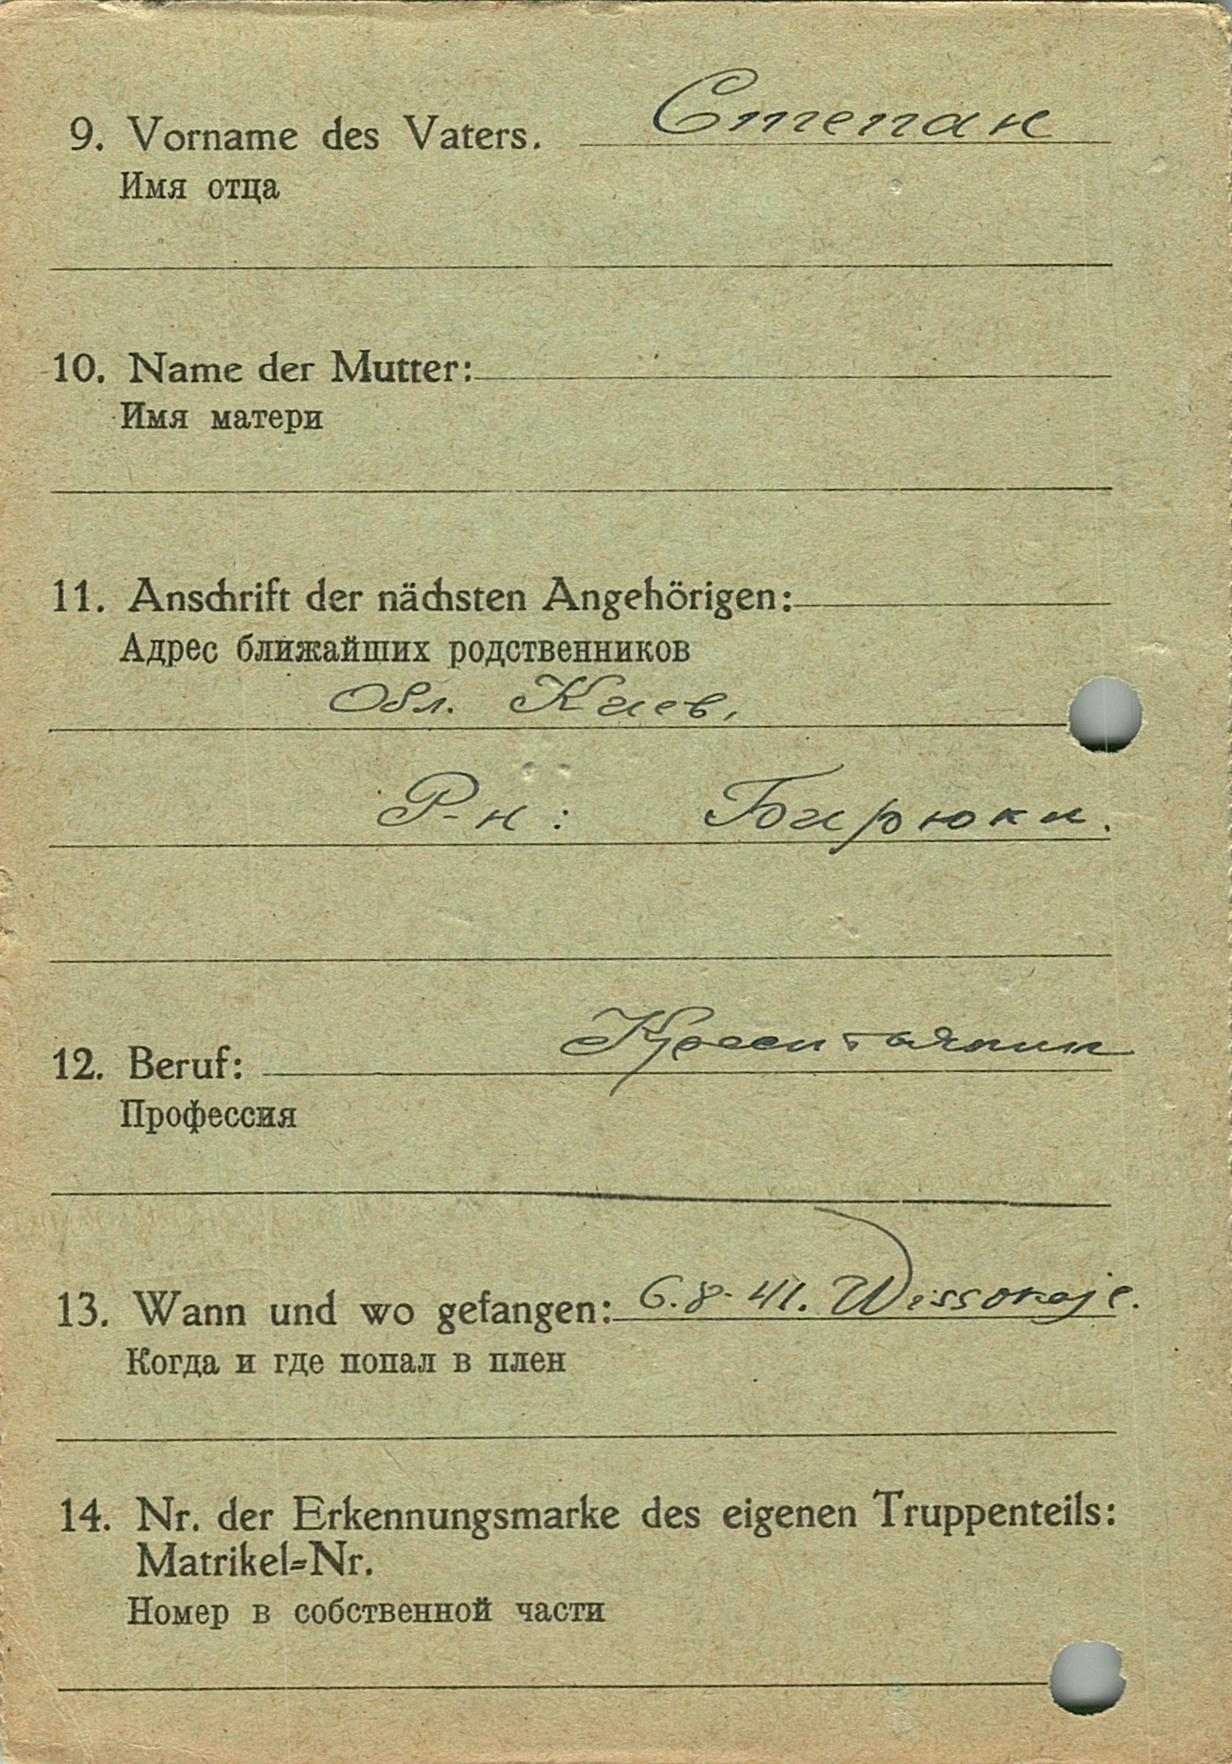 9. Vorname des Vaters. Степан
Имя отца
10. Name der Mutter:
Имя матери
11. Anschrift der nächsten Angehörigen:
Адрес ближайших родственников
Обл. Киев,
Р-н: Бирюки.
12. Beruf: Крестьянин
Профессия
13. Wann und wo gefangen: 6.8.41. Wissokoje.
Когда и где попал в плен
14. Nr. der Erkennungsmarke des eigenen Truppenteils:
Matrikel=Nr.
Номер в собственной части